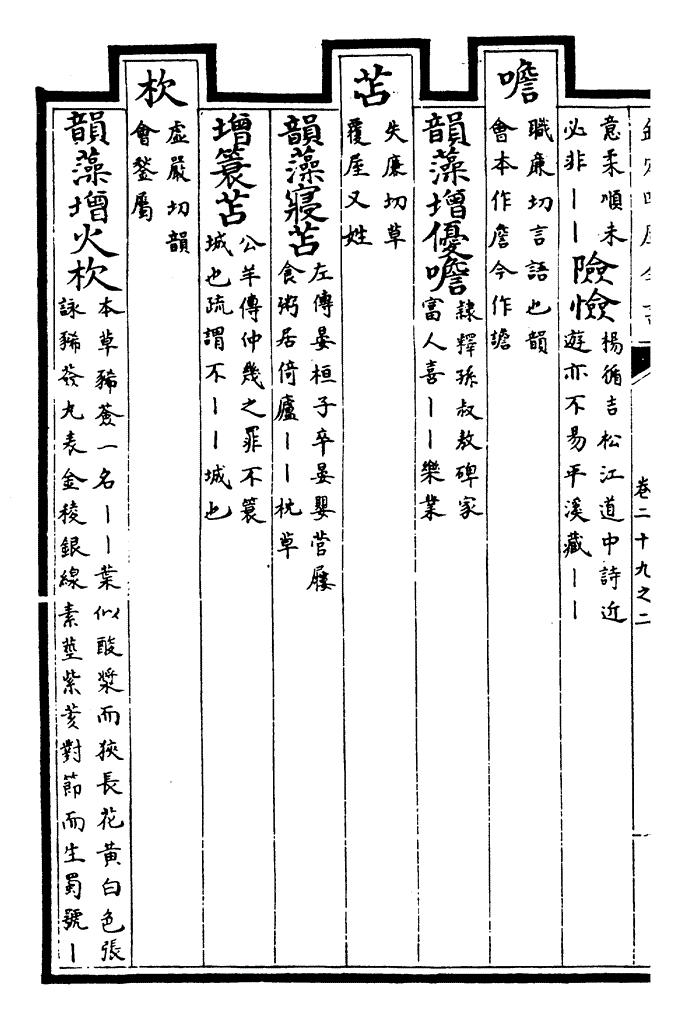 卷二十九之二
意柔順未
必非丨丨
險憸
楊循吉松江道中詩近
遊亦不易平溪藏丨丨
噡
職亷切言語也韻
會本作詹今作譫
韻藻增優噡
隷釋孫叔敖碑家
富人喜丨丨樂業
苫
失亷切草
覆屋又姓
韻藻寢苫
左傳晏桓子卒晏嬰菅屨
食粥居倚廬丨丨枕草
增蓑苫
公羊傳仲幾之罪不蓑
城也疏謂不丨丨城也
杴
虚嚴切韻
會鍫屬
韻藻增火杴
本草豨薟一名丨丨葉似酸漿而狹長花黄白色張
詠豨薟丸表金稜銀線素莖紫荄對節而生蜀號丨